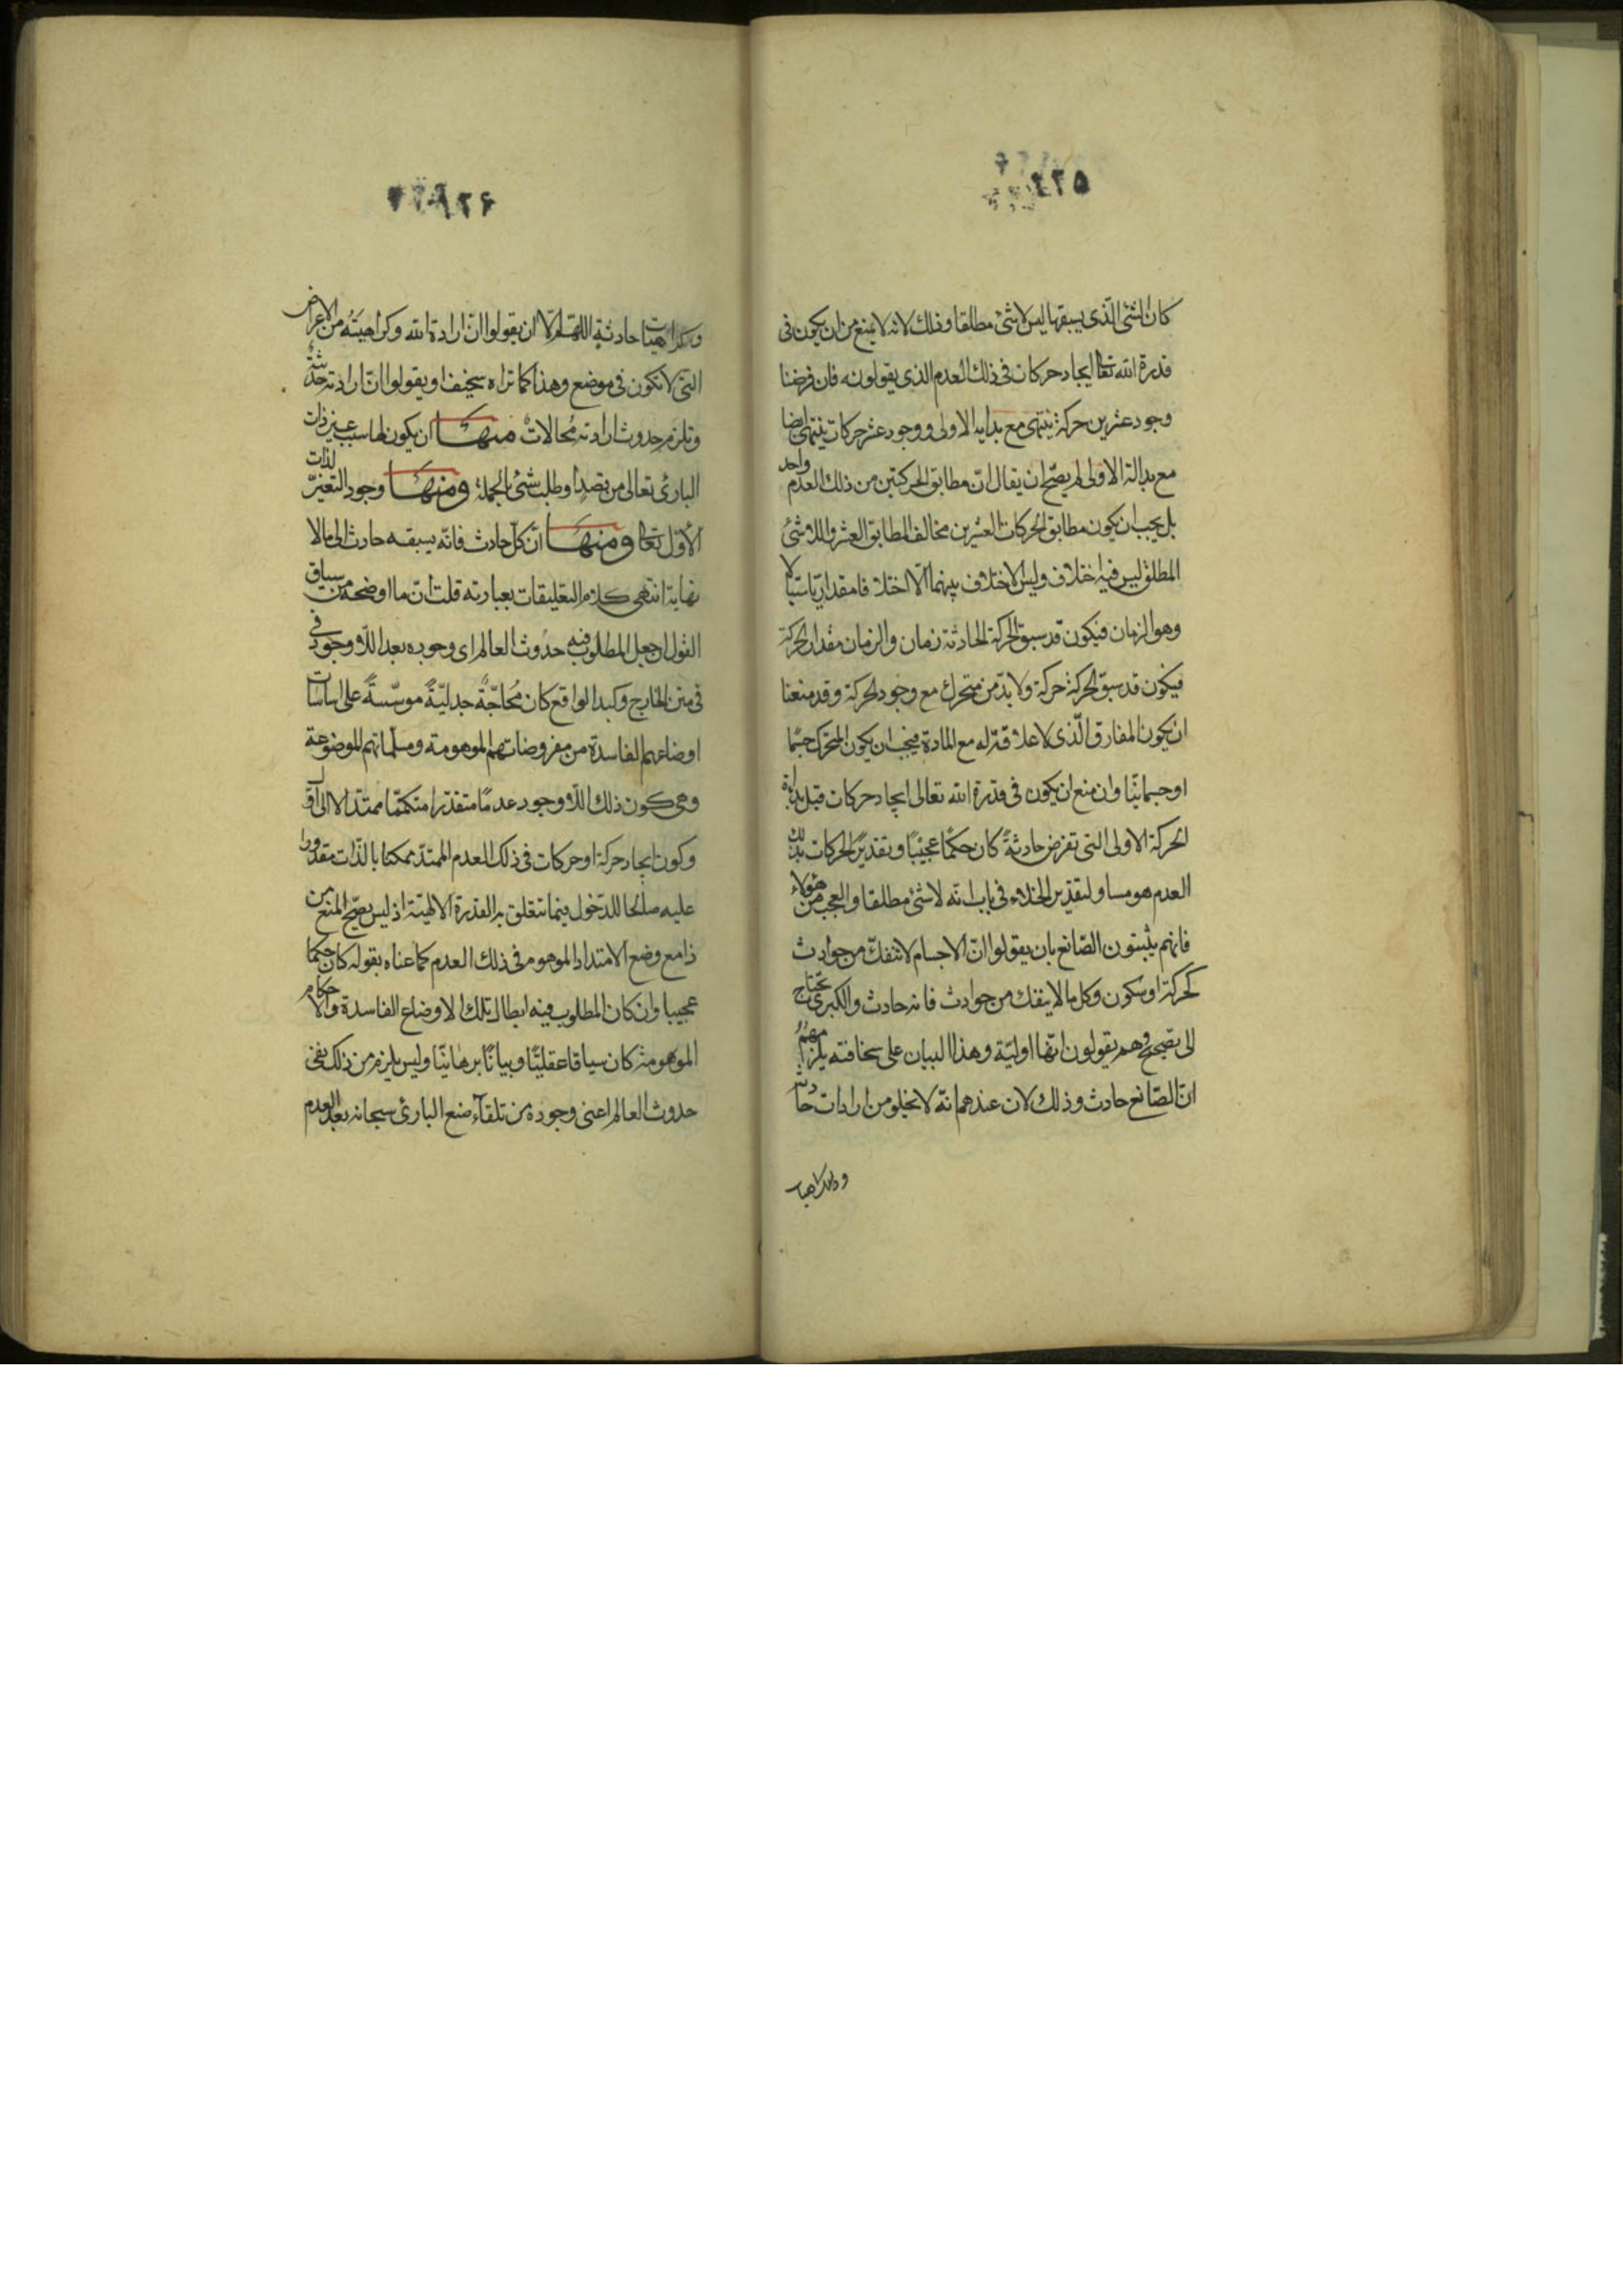 ٤٢٥
كان الشئ الّذى يسبقها ليس لا شئ مطلقا وذلك لانه لا يمنع من ان يكون فى
قدرة الله تعالى ايجاد حركات فى ذلك العدم الذى يقولونه فان فرضنا
وجود عشرين حركة ينتهى مع بداية الاولى ووجود عشر حركات ينتهى ايضا
مع بداية الاولى لم يصحّ ان يقال انّ مطابق الحركتين من ذلك العدم واحد
بل يجب ان يكون مطابق الحركات العشرين مخالف المطابق العشر واللاشئ
المطلق ليس فيه اختلاف وليس الاختلاف بينهما الّا اختلافا مقداريّا سيّالا
وهو الزمان فيكون قد سبق الحركة الحادثة زمان والزمان مقدار الحركة
فيكون قد سبق الحركة حركة ولا بدّ من متحرك مع وجود الحركة وقد منعنا
ان يكون المفارق الّذى لا علاقة له مع المادة فيجب ان يكون المتحرك جسما
او جسمانيّا وان منع ان يكون فى قدرة الله تعالى ايجاد حركات قبل بداية
الحركة الاولى التى تفرض حادثةً كان حكمًا عجيبًا وتقدير الحركات بذلك
العدم هو مساو لتقدير الخلاء فى باب انّه لا شئ مطلقا والعجب من هؤلاء
فانهم يثبتون الصّانع بان يقولوا انّ الاجسام لا تنفكّ من حوادث
كحركة او سكون وكل ما لا ينفك من حوادث فانه حادث والكبرى تحتاج
الى تصحيح وهم يقولون انّها اوليّة وهذا البيان على سخافته يلزمهم
انّ الصّانع حادث وذلك لان عندهم انّه لا يخلو من ارادات حادثة
وكراهيات
٤٢٦
وكراهيات حادثة اللهمّ الّا ان يقولوا انّ ارادة الله وكراهيته من الاعراض
التى لا تكون فى موضع وهذا كما تراه سخيف او يقولوا انّ ارادته حادثة
وتلزم حدوث ارادته مُحالاتٌ منها ان يكون لها سبب غير ذات
البارئ تعالى من قصد او طلب شئ بالجملة ومنها وجود التغيّر لذات
الأوّل تعالى ومنها انّ كلّ حادث فانّه يسبقه حادث الى ما لا
نهاية انتهى كلام التعليقات بعبارته قلت انّ ما اوضحه من سياق
القول ان جعل المطلوب فيه حدوث العالم اى وجوده بعد اللّاوجود فى
فى متن الخارج وكبد الواقع كان مُحاجّةً جدليّةً موسّسةً على اساسات
اوضاعهم الفاسدة من مفروضاتهم الموهومة ومسلّماتهم الموضوعة
وهى كون ذلك اللّاوجود عدمًا متقدّرا متكمّما ممتدّا لا الى اوّل
وكون ايجاد حركة او حركات فى ذلك العدم الممتدّ ممكنا بالذّات مقدورا
عليه صالحا للدّخول فيما تتعلق به القدرة الالهيّة اذ ليس يصحّ المنع من
ذا مع وضع الامتداد الموهوم فى ذلك العدم كما عناه بقوله كان حكما
عجيبا وان كان المطلوب فيه ابطال تلك الاوضاع الفاسدة والاحكام
الموهومة كان سياقا عقليّا وبيانًا برهانيّا وليس يلزم من ذلك نفى
حدوث العالم اعنى وجوده من تلقاء صنع البارئ سبحانه بعد العدم